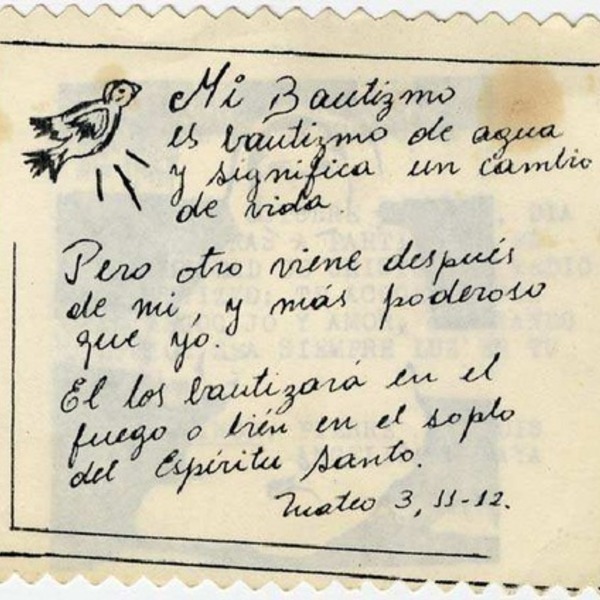 Mi Bautizmo
es bautizmo de agua
y significa un cambio
de vida
Pero otro viene después
de mi, y más poderoso
que yo.
El los bautizará en el
fuego o bién en el soplo
del Espíritu Santo.
Mateo 3, 11-12.